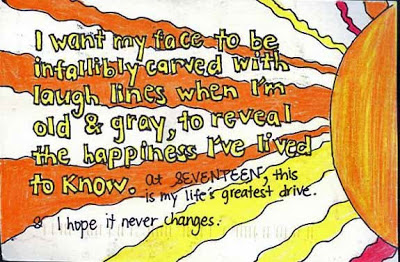 I want my face to be
infallibly carved with
laugh lines when I'm
old & gray, to reveal
the happiness I've lived
to know. at SEVENTEEN, this
is my life's greatest drive.
& I hope it never changes.